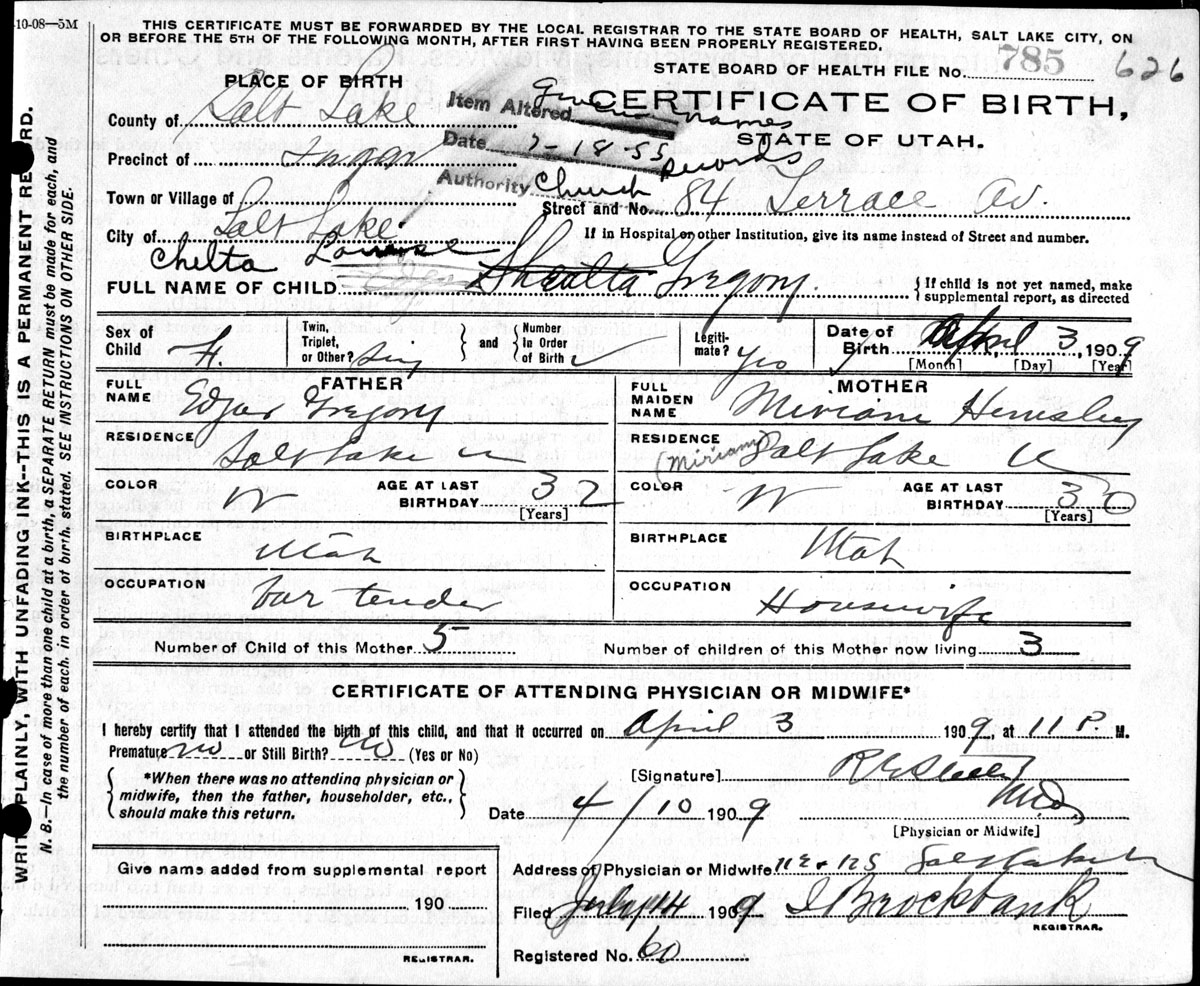 -10-08—5M
THIS CERTIFICATE MUST BE FORWARDED BY THE LOCAL REGISTRAR TO THE STATE BOARD OF HEALTH, SALT LAKE CITY, ON
OR BEFORE THE 5TH OF THE FOLLOWING MONTH, AFTER FIRST HAVING BEEN PROPERLY REGISTERED.
STATE BOARD OF HEALTH FILE No. 785 626
PLACE OF BIRTH
CERTIFICATE OF BIRTH,
STATE OF UTAH.
Item Altered Given names
Date 7-18-55
Authority Church Records
County of Salt Lake
Precinct of
Town or Village of
Street and No. 84 Terrace Av.
City of Salt Lake
If in Hospital or other Institution, give its name instead of Street and number.
Chelta Louise
FULL NAME OF CHILD Shealta Gregory.
If child is not yet named, make
supplemental report, as directed
Sex of Child F.
Twin, Triplet, or Other? Sing
and
Number In Order of Birth
Legitimate? yes
Date of Birth April 3, 1909
[Month] [Day] [Year]
FATHER
FULL NAME Edgar Gregory
RESIDENCE Salt Lake U
COLOR W
AGE AT LAST BIRTHDAY 32
[Years]
BIRTHPLACE Utah
OCCUPATION bar tender
MOTHER
FULL MAIDEN NAME Miriam Hemsley
(Miriam)
RESIDENCE Salt Lake U
COLOR W
AGE AT LAST BIRTHDAY 30
[Years]
BIRTHPLACE Utah
OCCUPATION Housewife
Number of Child of this Mother 5
Number of children of this Mother now living 3
CERTIFICATE OF ATTENDING PHYSICIAN OR MIDWIFE*
I hereby certify that I attended the birth of this child, and that it occurred on April 3 1909, at 11 P. M.
Premature no or Still Birth? no (Yes or No)
*When there was no attending physician or
midwife, then the father, householder, etc.,
should make this return.
[Signature] M.D.
Date 4/10 1909
[Physician or Midwife]
Give name added from supplemental report
190
REGISTRAR.
Address of Physician or Midwife Salt Lake
Filed 14 1909 Brockbank
REGISTRAR.
Registered No. 60
WRITE PLAINLY, WITH UNFADING INK--THIS IS A PERMANENT RECORD.
N. B.—In case of more than one child at a birth, a SEPARATE RETURN must be made for each, and
the number of each, in order of birth, stated. SEE INSTRUCTIONS ON OTHER SIDE.